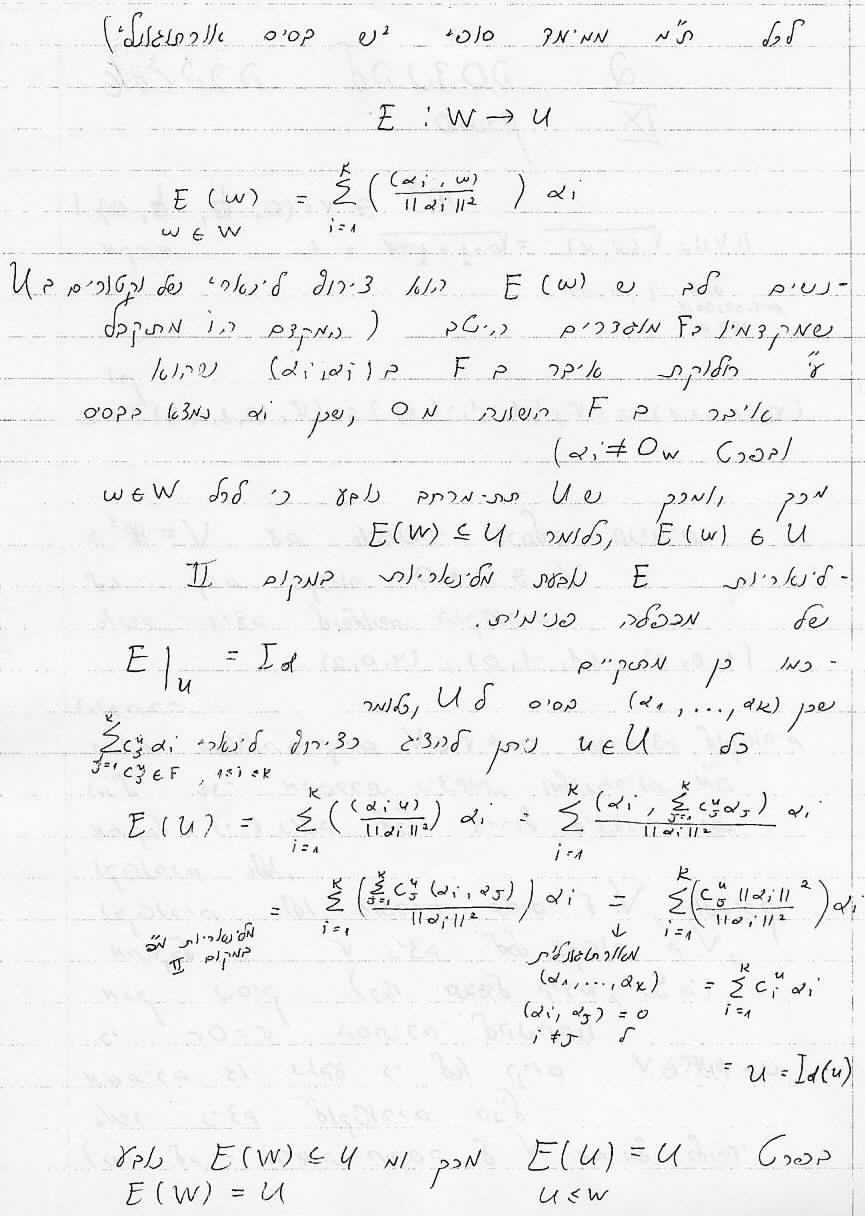 לכל ת"מ ממימד סופי יש בסיס אורתוגונלי)
E : W → U
E(w) = \sum_{i=1}^{k} ( \frac{(α_i, w)}{||α_i||^2} ) α_i
w ∈ W
- נשים לב ש E(w) הוא צירוף לינארי של וקטורים ב U
שמקדמיו ב F מוגדרים היטב (המקדם ה i מתקבל
ע"י חלוקת איבר ב F ב (α_i, α_i) שהוא
איבר ב F השונה מ 0, שכן α_i נמצא בבסיס
(ובפרט α_i ≠ 0_W)
מכך, ומכך ש U תת-מרחב נובע כי לכל w ∈ W
E(w) ∈ U, כלומר E(W) ⊆ U
- לינאריות E נובעת מלינאריות במקום II
של מכפלה פנימית.
- כמו כן מתקיים E|_U = Id
שכן (α_1, ..., α_k) בסיס ל U, כלומר
כל u ∈ U ניתן להציג כצירוף לינארי \sum_{j=1}^{k} c_j^u α_i
c_j^u ∈ F, 1≤i≤k
E(u) = \sum_{i=1}^{k} ( \frac{(α_i, u)}{||α_i||^2} ) α_i = \sum_{i=1}^{k} \frac{(α_i, \sum_{j=1}^{k} c_j^u α_j)}{||α_i||^2} α_i
= \sum_{i=1}^{k} ( \frac{\sum_{j=1}^{k} c_j^u (α_i, α_j)}{||α_i||^2} ) α_i = \sum_{i=1}^{k} ( \frac{c_j^u ||α_i||^2}{||α_i||^2} ) α_i
מלינאריות מ"פ
במקום II
↓
מאורתוגונלית
(α_1, ..., α_k) = \sum_{i=1}^{k} c_i^u α_i
(α_i, α_j) = 0
ל i ≠ j
= u = Id(u)
בפרט E(U) = U מכך ומ E(W) ⊆ U נובע
U ≤ W E(W) = U